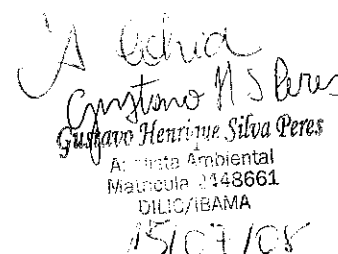 Gustavo H S Peres
Gustavo Henrique Silva Peres
Analista Ambiental
Matrícula 2448661
DILIC/IBAMA
15/07/08